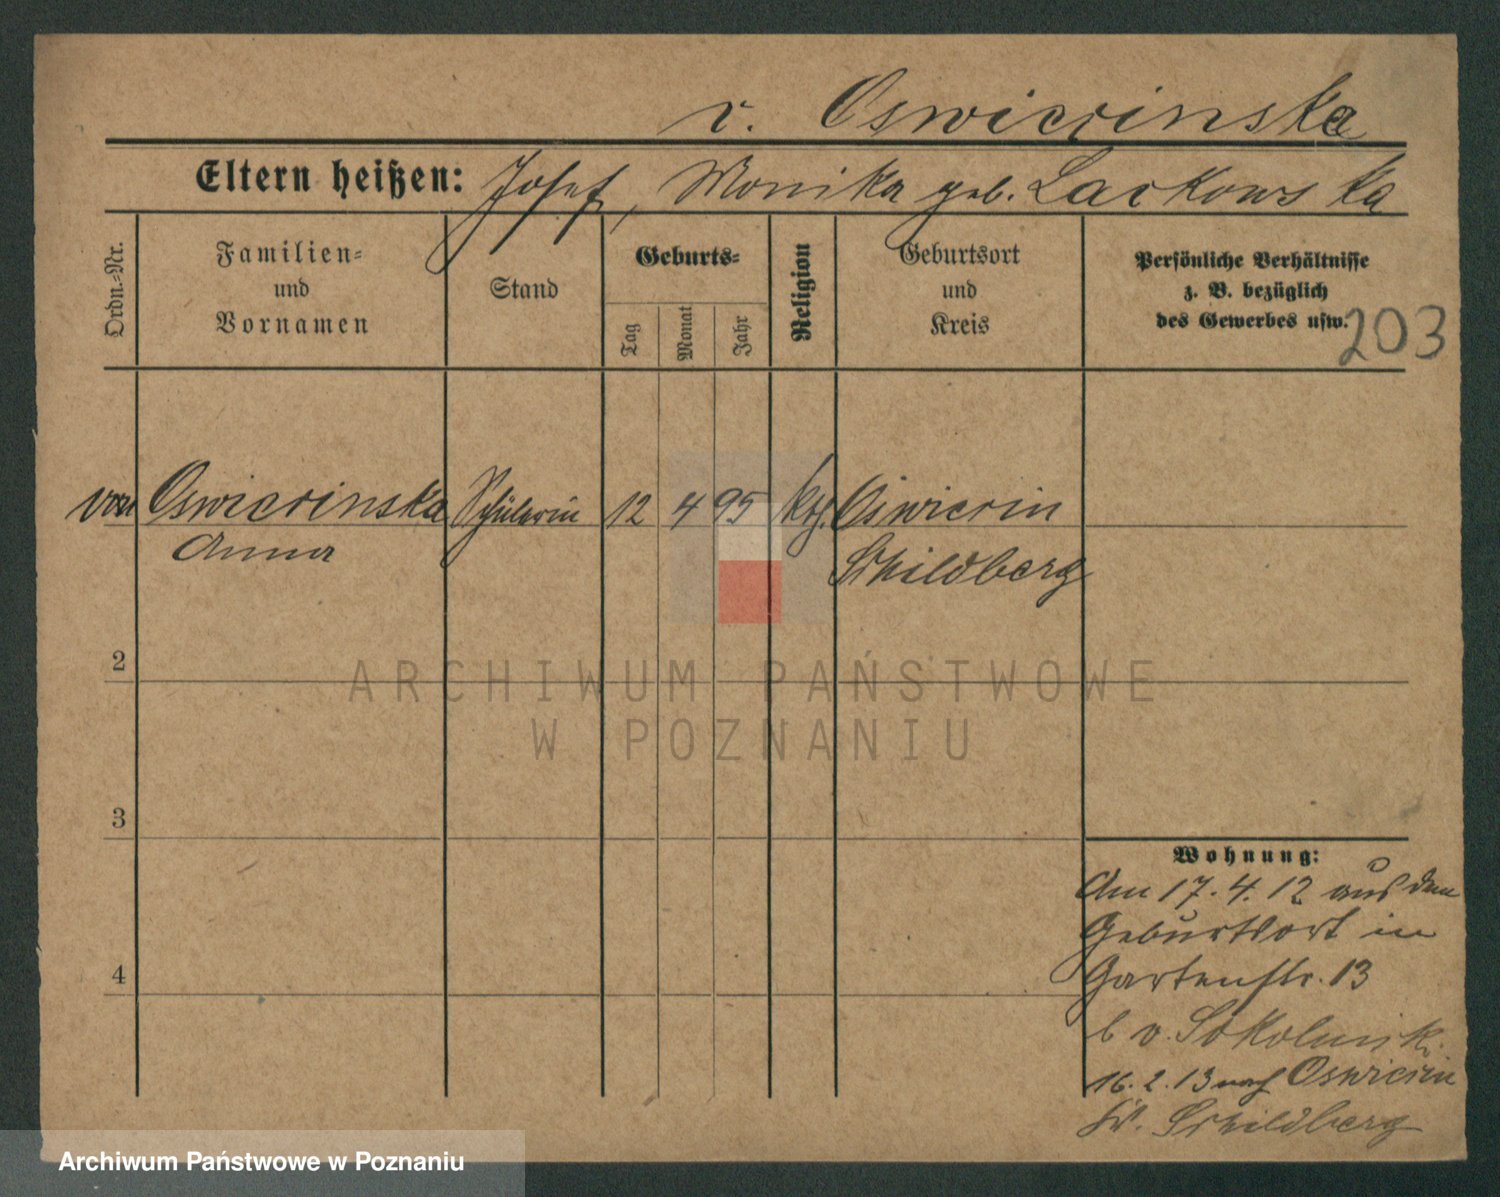 v. Oswiecinska
Eltern heißen: Josef, Monika geb. Lackowska
Ordn.-Nr.
Familien-
und
Vornamen
Stand
Geburts-
Tag
Monat
Jahr
Religion
Geburtsort
und
Kreis
Persönliche Verhältnisse
z. B. bezüglich
des Gewerbes usw.
203
von Oswiecinska Schülerin 12 4 95 kth. Oswiecin
Anna Schildberg
2
ARCHIWUM PAŃSTWOWE
W POZNANIU
3
Wohnung:
Am 17. 4. 12 aus dem
Geburtsort in
4
Gartenstr. 13
b v. Sokolnicki
16. 2. 13 nach Oswiecin
Kr. Schildberg
Archiwum Państwowe w Poznaniu